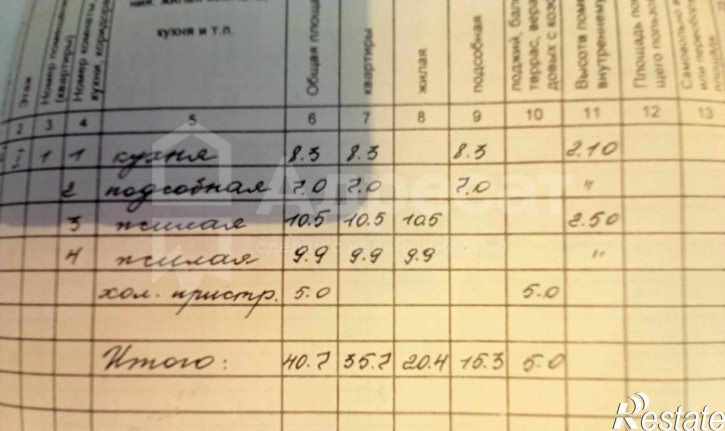 кухня и т.п.
Этаж
Номер комнаты,
кухни, коридора
Общая площадь
квартиры
жилая
подсобная
лоджий,
террас,
Высота
внутреннему
Площадь
щего
Самовольно
или
площади
2 3 4 5 6 7 8 9 10 11 12 13
1 1 кухня 8.3 8.3 8.3 2.10
2 подсобная 7.0 7.0 7.0 "
3 жилая 10.5 10.5 10.5 2.50
4 жилая 9.9 9.9 9.9 "
хол. пристр. 5.0 5.0
Итого: 40.7 35.7 20.4 15.3 5.0
Restate